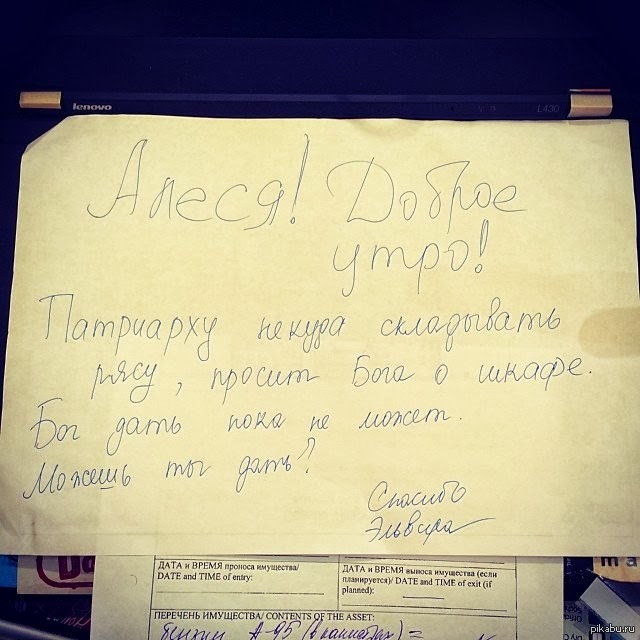 lenovo
L430
Алеся! Доброе
утро!
Патриарху некуда складывать
рясу, просит Бога о шкафе.
Бог дать пока не может.
Можешь ты дать?
Спасибо
Эльвира
ДАТА и ВРЕМЯ проноса имущества/
DATE and TIME of entry:
ДАТА и ВРЕМЯ выноса имущества (если
планируется)/ DATE and TIME of exit (if
planned):
ПЕРЕЧЕНЬ ИМУЩЕСТВА/ CONTENTS OF THE ASSET:
А-95
pikabu.ru